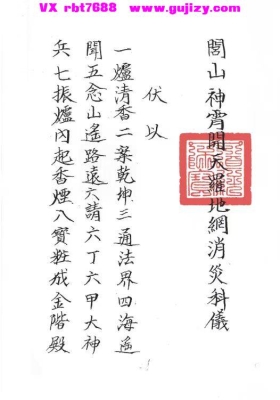 VX rbt7688 www.gujizy.com
閭山神霄開天羅地網消災科儀
伏以
一爐清香二案乾坤三通法界四海遙
聞五念山遙路遠六請六丁六甲大神
兵七振爐內起香煙八寶粧成金階殿